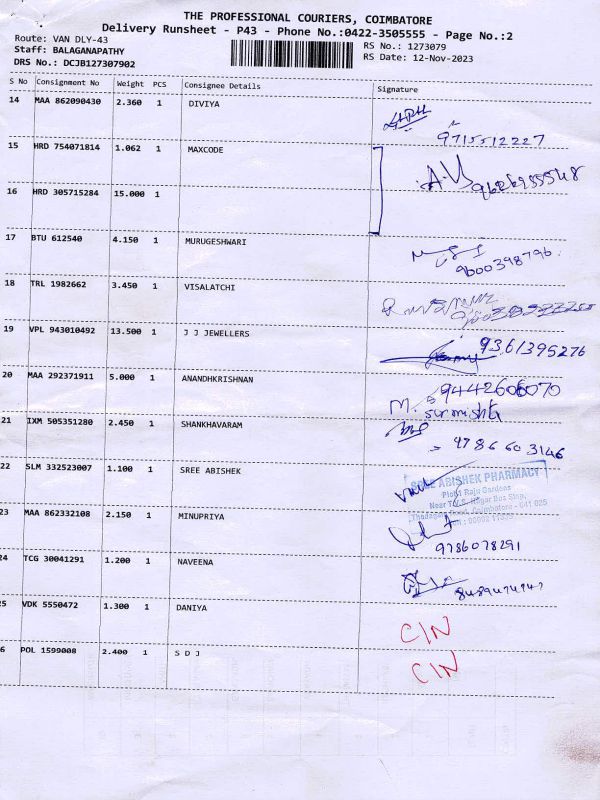 THE PROFESSIONAL COURIERS, COIMBATORE
Delivery Runsheet - P43 - Phone No.:0422-3505555 - Page No.:2
Route: VAN DLY-43
Staff: BALAGANAPATHY
DRS No.: DCJB127307902
RS No.: 1273079
RS Date: 12-Nov-2023
S No Consignment No Weight PCS Consignee Details Signature
14 MAA 862090430 2.360 1 DIVIYA
9715512227
15 HRD 754071814 1.062 1 MAXCODE
16 HRD 305715284 15.000 1
17 BTU 612540 4.150 1 MURUGESHWARI
9600398796
18 TRL 1982662 3.450 1 VISALATCHI
19 VPL 943010492 13.500 1 J J JEWELLERS
9361395276
20 MAA 292371911 5.000 1 ANANDHKRISHNAN
9442606070
M. S
21 IXM 505351280 2.450 1 SHANKHAVARAM
9786603146
22 SLM 332523007 1.100 1 SREE ABISHEK
SREE ABISHEK PHARMACY
Plot1 Raju Gardens
Nagar Bus Stop,
Road, Coimbatore - 641 025
23 MAA 862332108 2.150 1 MINUPRIYA
9786078291
24 TCG 30041291 1.200 1 NAVEENA
25 VDK 5550472 1.300 1 DANIYA
CIN
6 POL 1599008 2.400 1 S D J
CIN